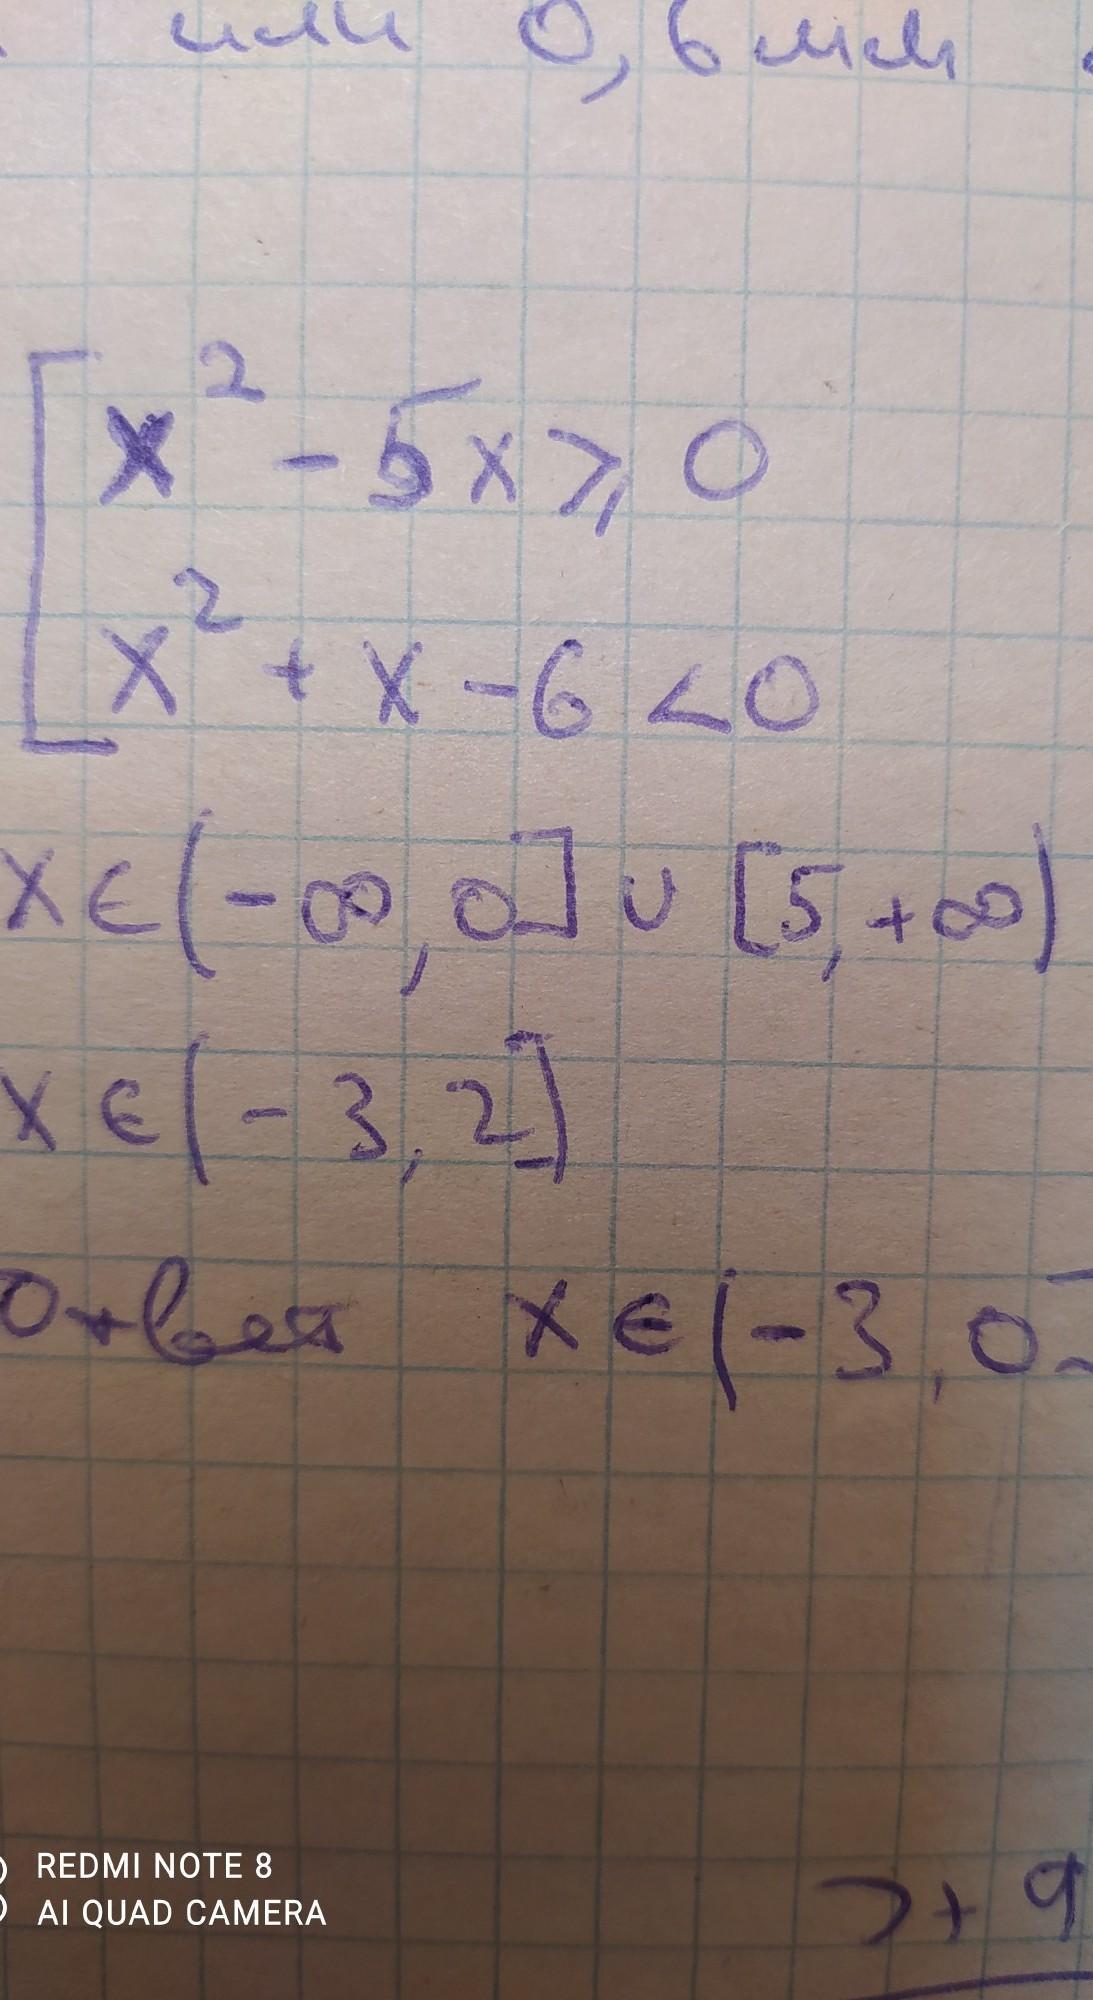 или 0,6 мм
x² - 5x ⩾ 0
x² + x - 6 < 0
x ∈ (-∞, 0] ∪ [5, +∞)
x ∈ (-3, 2]
Ответ x ∈ (-3, 0]
REDMI NOTE 8
AI QUAD CAMERA